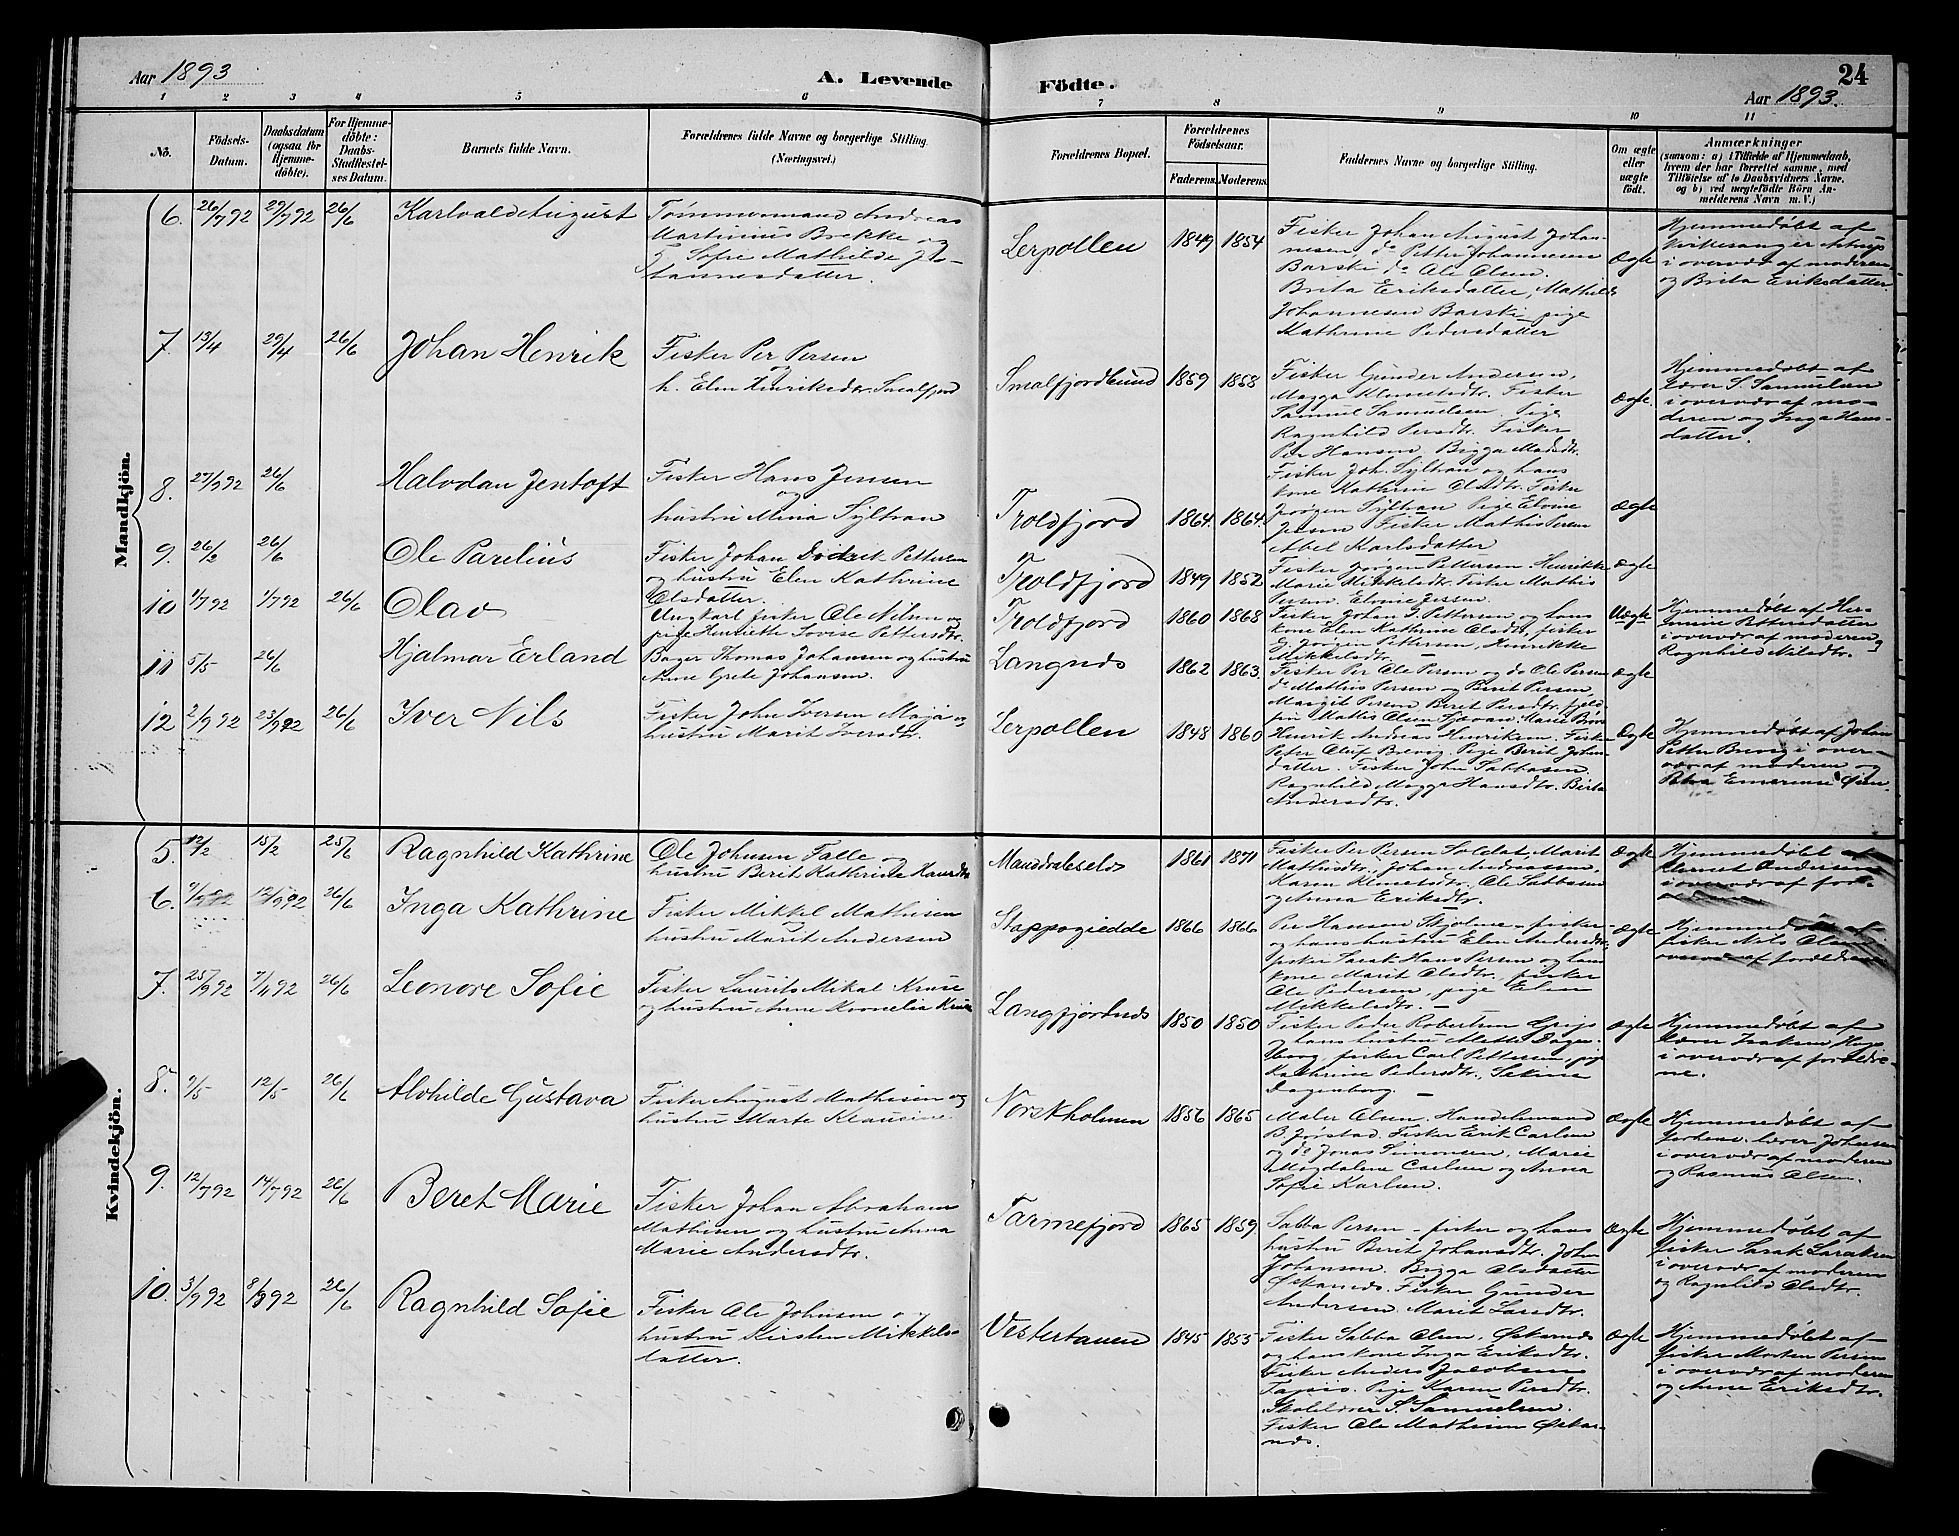 Aar 1893
A. Levende
Födte.
24
Aar 1893.
1 2 3 4 5 6 7 8 9 10 11
No.
Födsels-
Datum.
Daabsdatum
(ogsaa for
Hjemme-
döbte).
For Hjemme-
döbte:
Daabs-
Stadfæstel-
ses Datum.
Barnets fulde Navn.
Forældrenes fulde Navne og borgerlige Stilling
(Næringsvei.)
Forældrenes Bopæl.
Forældrenes
Födselsaar.
Faderens. Moderens.
Faddernes Navne og borgerlige Stilling.
Om ægte
eller
uægte
födt.
Anmærkninger
(saasom: a) i Tilfælde af Hjemmedaab,
hvem der har forrettet samme, med
Tilföielse af to Daabsvidners Navne,
og b) ved uægtefödte Börn An-
melderens Navn m. V.)
Mandkjön.
6. 26/7 92 29/7 92 26/6 Karlvald August
Tømmermand Andreas
Martinius Brekke og
Sofie Mathilde Jo-
hannesdatter.
Lerpollen 1849 1854
Fisker Johan August Johan-
nesen, do Petter Johannesen
Barski do Ole Olsen.
Brita Eriksdatter, Mathilde
Johannesen Barski pige
Kathrine Pedersdatter
Ægte
Hjemmedøbt af
Kirkesanger
i overvær af moderen
og Brita Eriksdatter.
7. 13/4 29/4 26/6 Johan Henrik
Fisker Per Persen
og
h. Elen Henriksdr. Smalfjord
Smalfjordbund 1859 1858
Fisker Gunder Andersen,
Magga Klemetsdtr. Fisker
Samuel Samuelsen. Pige
Ragnhild Persdtr. Fisker
Per Hansen, Bigga Madsdtr.
Ægte.
Hjemmedøbt af
Lærer S. Samuelsen
i overvær af mo-
deren og Inga Hans-
datter.
8. 27/9 92 26/6 Halvdan Jentoft
Fisker Hans Jensen
og
hustru Mina Syltran
Troldfjord 1864. 1864.
Fisker Joh. Syltran og hans
kone Kathrine Olsdtr. Fisker
Jørgen Syltran Pige Elvine
Jessen Fisker Mathis Persen
Abel Karlsdatter
Ægte
9. 26/2 26/6 Ole Parelius
Fisker Johan Pettersen
og hustru Elen Kathrine
Olsdatter.
Troldfjord 1849 1852
Fisker Jørgen Pettersen Henrikke
Marie Mikkelsdtr. Fisker Mathis
Persen. Elvine Jessen.
Ægte
10 1/7 92 1/7 92 26/6 Olav
Ungkarl fisker Ole Nilsen og
pige Henriette Lovise Pettersdtr.
Troldfjord 1860 1868
Fisker Johan J. Pettersen og hans
kone Elen Kathrine Olsdtr, fisker
E. Jørgen Pettersen, Henrikke
Mikkelsdtr.
Uægte
Hjemmedøbt af Her-
mine Pettersdatter
i overvær af moderen
Ragnhild Nilsdtr.
11 5/5 26/6 Hjalmar Erland
Bager Thomas Johansen og hustru
Anne Grete Johansen.
Langnes 1862 1863.
Fisker Per Ole Persen og do Ole Persen
do Mathis Persen og Berit Persen,
Ægte
12 2/9 92 23/9 92 26/6 Iver Nils
Fisker John Iversen Maja og
hustru Marit Iversdtr.
Lerpollen 1848 1860
Margit Persen Beret Persdtr. fjeld-
fin Mattis Olsen
Henrik Andreas Henriksen. Fisker
Peter Oluf Brevig. Pige Berit Johan-
datter. Fisker John Sabbasen
Ragnhild Magga Hansdtr. Birte
Andersdtr.
Ægte
Hjemmedøbt af Johan
Petter Brevig i over-
vær af moderen og
Kvindekjön.
5. 12/2 15/2 25/6 Ragnhild Kathrine
Ole Johnsen Falle og
hustru Berit Kathrine Hansdtr
Mandralselv 1861 1871
Fisker Per Persen Soldat, Marit
Mathisdtr. Johan Andreassen,
Karen Klemetsdtr. Ole Sabbasen
og Anna Eriksdtr.
Ægte
Hjemmedøbt af
Klemet Andersen
i overvær af for-
6. 12/9 92 26/6 Inga Kathrine
Fisker Mikkel Mathisen
og
hustru Marit Andersen
Stappogiedde 1866 1866
Per Hansen Skjolme fisker
og hans hustru Elen Andersdtr.
fisker Sarak Hans Persen og hans
kone Marit Olsdtr., fisker
Ole Pedersen, pige Elen
Mikkelsdtr.
Ægte
Hjemmedøbt af
fisker Nils Olsen
overvær af forældrene
7. 25/9 92 7/11 92 26/6 Leonore Sofie
Fisker Laurits Mikal Kruse
og hustru Anne Kornelia Kruse
Langfjordnes 1850 1850
Fisker Peder Robertsen Grip
og hans hustru Mette Dagen-
borg, fisker Carl Pettersen, pige
Kathrine Pedersdtr., Sekine
Dagenborg.
Ægte
Hjemmedøbt af
Lærer Isaksen Hops
i overvær af forældre-
ne.
8. 9/5 12/5 26/6 Alvhilde Gustava
Fisker August Mathisen og
hustru Marte Klausine
Norskholmen 1856 1865
Maler Olsen. Handelsmand
B. Jørstad. Fisker Erik Carlsen
og do Jonas Simonsen, Marie
Magdalene Carlsen og Anna
Sofie Karlsen.
Ægte
Hjemmedøbt af
forhenv. Lærer Johansen
i overvær af moderen
og Rasmus Olsen.
9. 12/7 92 14/7 92 26/6 Beret Marie
Fisker Johan Abraham
Mathisen og hustru Anna
Marie Andersdtr.
Tarmefjord 1865 1859
Sabba Persen fisker og hans
hustru Berit Johansdtr. John
Johansen. Bigga Olsdatter
Øskarnes. Fisker Gunder
Andersen Marit Larsdtr.
Ægte
Hjemmedøbt af
fisker Sarak Saraksen
i overvær af moderen
og Ragnhild Olsdtr.
10. 3/9 92 8/9 92 26/6 Ragnhild Sofie
Fisker Ole Johnsen og
hustru Kirsten Mikkels-
datter.
Vestertanen 1845 1855
Fisker Sabba Olsen, Øskarnes
og hans kone Inga Eriksdtr.
Fisker Anders Jacobsen
Pige Karen Persdtr.
Skolelærer S. Samuelsen.
Fisker Ole Mathisen Øskar-
nes.
Ægte
Hjemmedøbt af
fisker Morten Persen
i overvær af moderen
og Anne Eriksdtr.